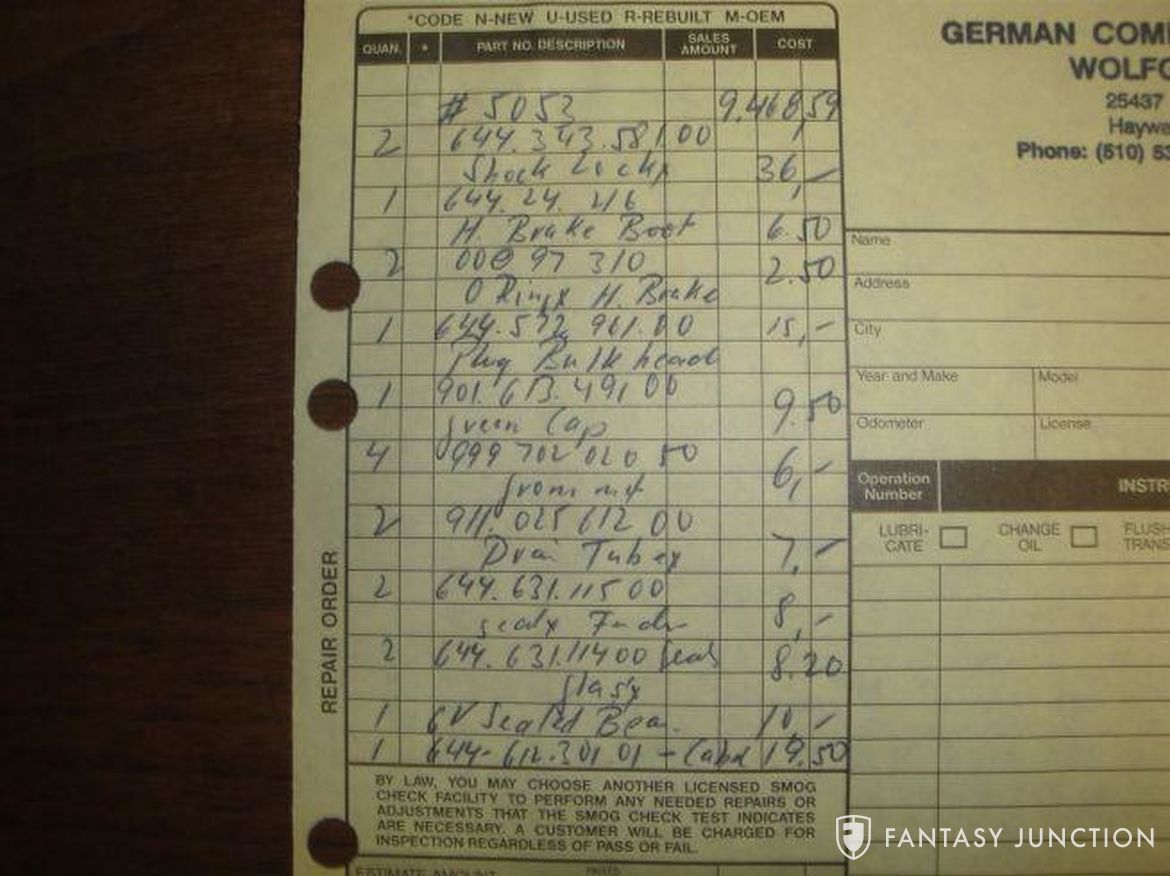 *CODE N-NEW U-USED R-REBUILT M-OEM
QUAN. * PART NO. DESCRIPTION SALES AMOUNT COST
# 5053 9,468,59
2 644.343.581.00
Shock 36,—
1 644.24.416
H. Brake Boot 6.50
2 000 97 310 2.50
O Rings H. Brake
1 644.572.961.00 15,—
Plug Bulkhead
1 901.613.491 00 9.50
green Cap
4 999 702 020 50 6,—
2 911.025 612 00
Drai Tubes 7,—
2 644.631.115 00
seals 8,—
2 644.631.114 00 Seals 8.20
glass
1 6V Sealed Beam 10,—
1 644-612.301 01 - 19,50
BY LAW, YOU MAY CHOOSE ANOTHER LICENSED SMOG
CHECK FACILITY TO PERFORM ANY NEEDED REPAIRS OR
ADJUSTMENTS THAT THE SMOG CHECK TEST INDICATES
ARE NECESSARY. A CUSTOMER WILL BE CHARGED FOR
INSPECTION REGARDLESS OF PASS OR FAIL.
ESTIMATE AMOUNT
REPAIR ORDER
GERMAN COM
WOLFG
25437
Haywa
Phone: (510) 53
Name
Address
City
Year and Make Model
Odometer License
Operation Number INSTR
LUBRI-CATE CHANGE OIL FLUSH TRANS
FANTASY JUNCTION